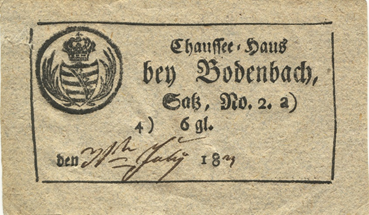 Chauſſee-Haus
bey Bodenbach,
Satz, No. 2. a)
4) 6 gl.
den July 18